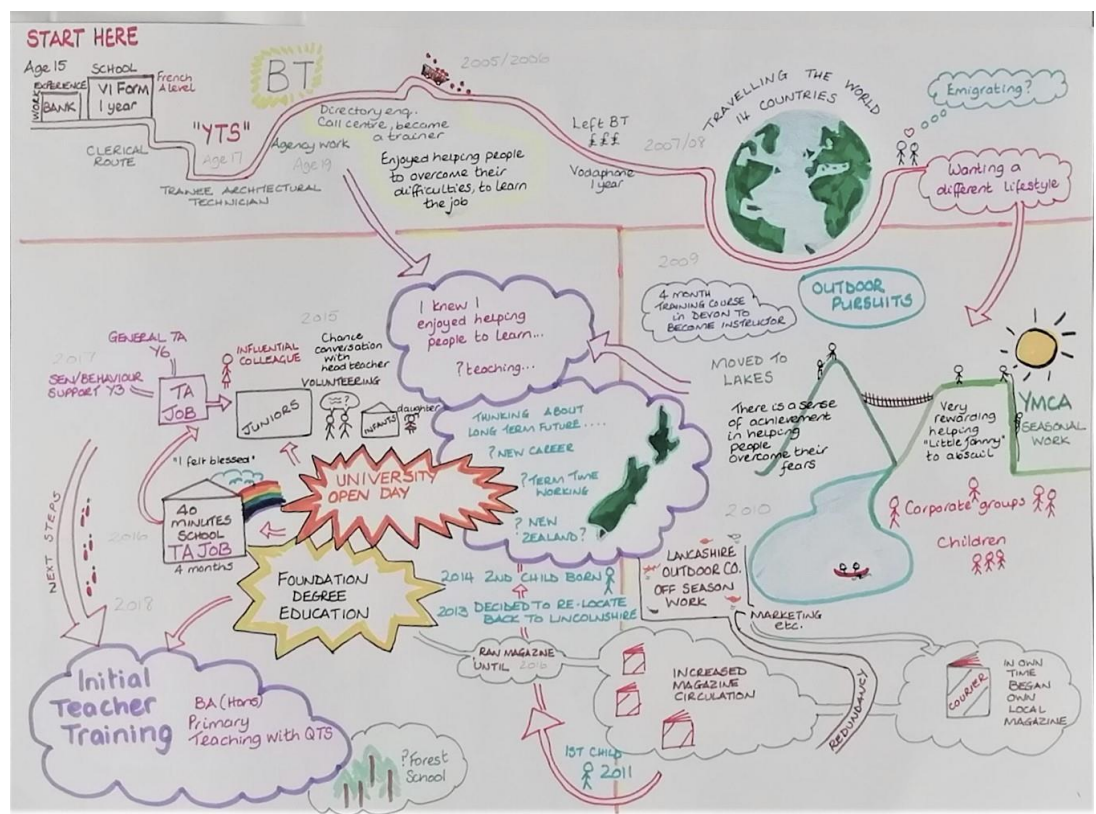 START HERE
Age 15
SCHOOL
WORK
EXPERIENCE
BANK
VI Form
1 year
French
A level
CLERICAL
ROUTE
"YTS"
Age 17
TRAINEE ARCHITECTURAL
TECHNICIAN
BT
Agency work
Age 19
Directory enq.
Call centre, become
a trainer
Enjoyed helping people
to overcome their
difficulties, to learn
the job
2005/2006
Left BT
£££
Vodaphone
1 year
2007/08
TRAVELLING THE WORLD
14 COUNTRIES
Emigrating?
Wanting a
different lifestyle
2009
4 MONTH
TRAINING COURSE
in DEVON TO
BECOME INSTRUCTOR
OUTDOOR
PURSUITS
MOVED TO
LAKES
There is a sense
of achievement
in helping
people
overcome their
fears
Very
rewarding
helping
"Little Jonny"
to abseil
YMCA
SEASONAL
WORK
Corporate groups
Children
2010
LANCASHIRE
OUTDOOR CO.
OFF SEASON
WORK
MARKETING
etc.
REDUNDANCY
COURIER
IN OWN
TIME
BEGAN
OWN
LOCAL
MAGAZINE
INCREASED
MAGAZINE
CIRCULATION
RAN MAGAZINE
UNTIL 2016
1ST CHILD
2011
2013 DECIDED TO RE-LOCATE
BACK TO LINCOLNSHIRE
2014 2ND CHILD BORN
I knew I
enjoyed helping
people to learn...
? teaching...
THINKING ABOUT
LONG TERM FUTURE....
? NEW CAREER
? TERM TIME
WORKING
? NEW
ZEALAND?
2015
Chance
conversation
with
head teacher
VOLUNTEERING
INFANTS
daughter
INFLUENTIAL
COLLEAGUE
JUNIORS
UNIVERSITY
OPEN DAY
FOUNDATION
DEGREE
EDUCATION
2016
40
MINUTES
SCHOOL
TA JOB
4 months
"I felt blessed"
2017
GENERAL TA
Y6
SEN/BEHAVIOUR
SUPPORT Y3
TA
JOB
NEXT STEPS
2018
Initial
Teacher
Training
BA (Hons)
Primary
Teaching with QTS
? Forest
School